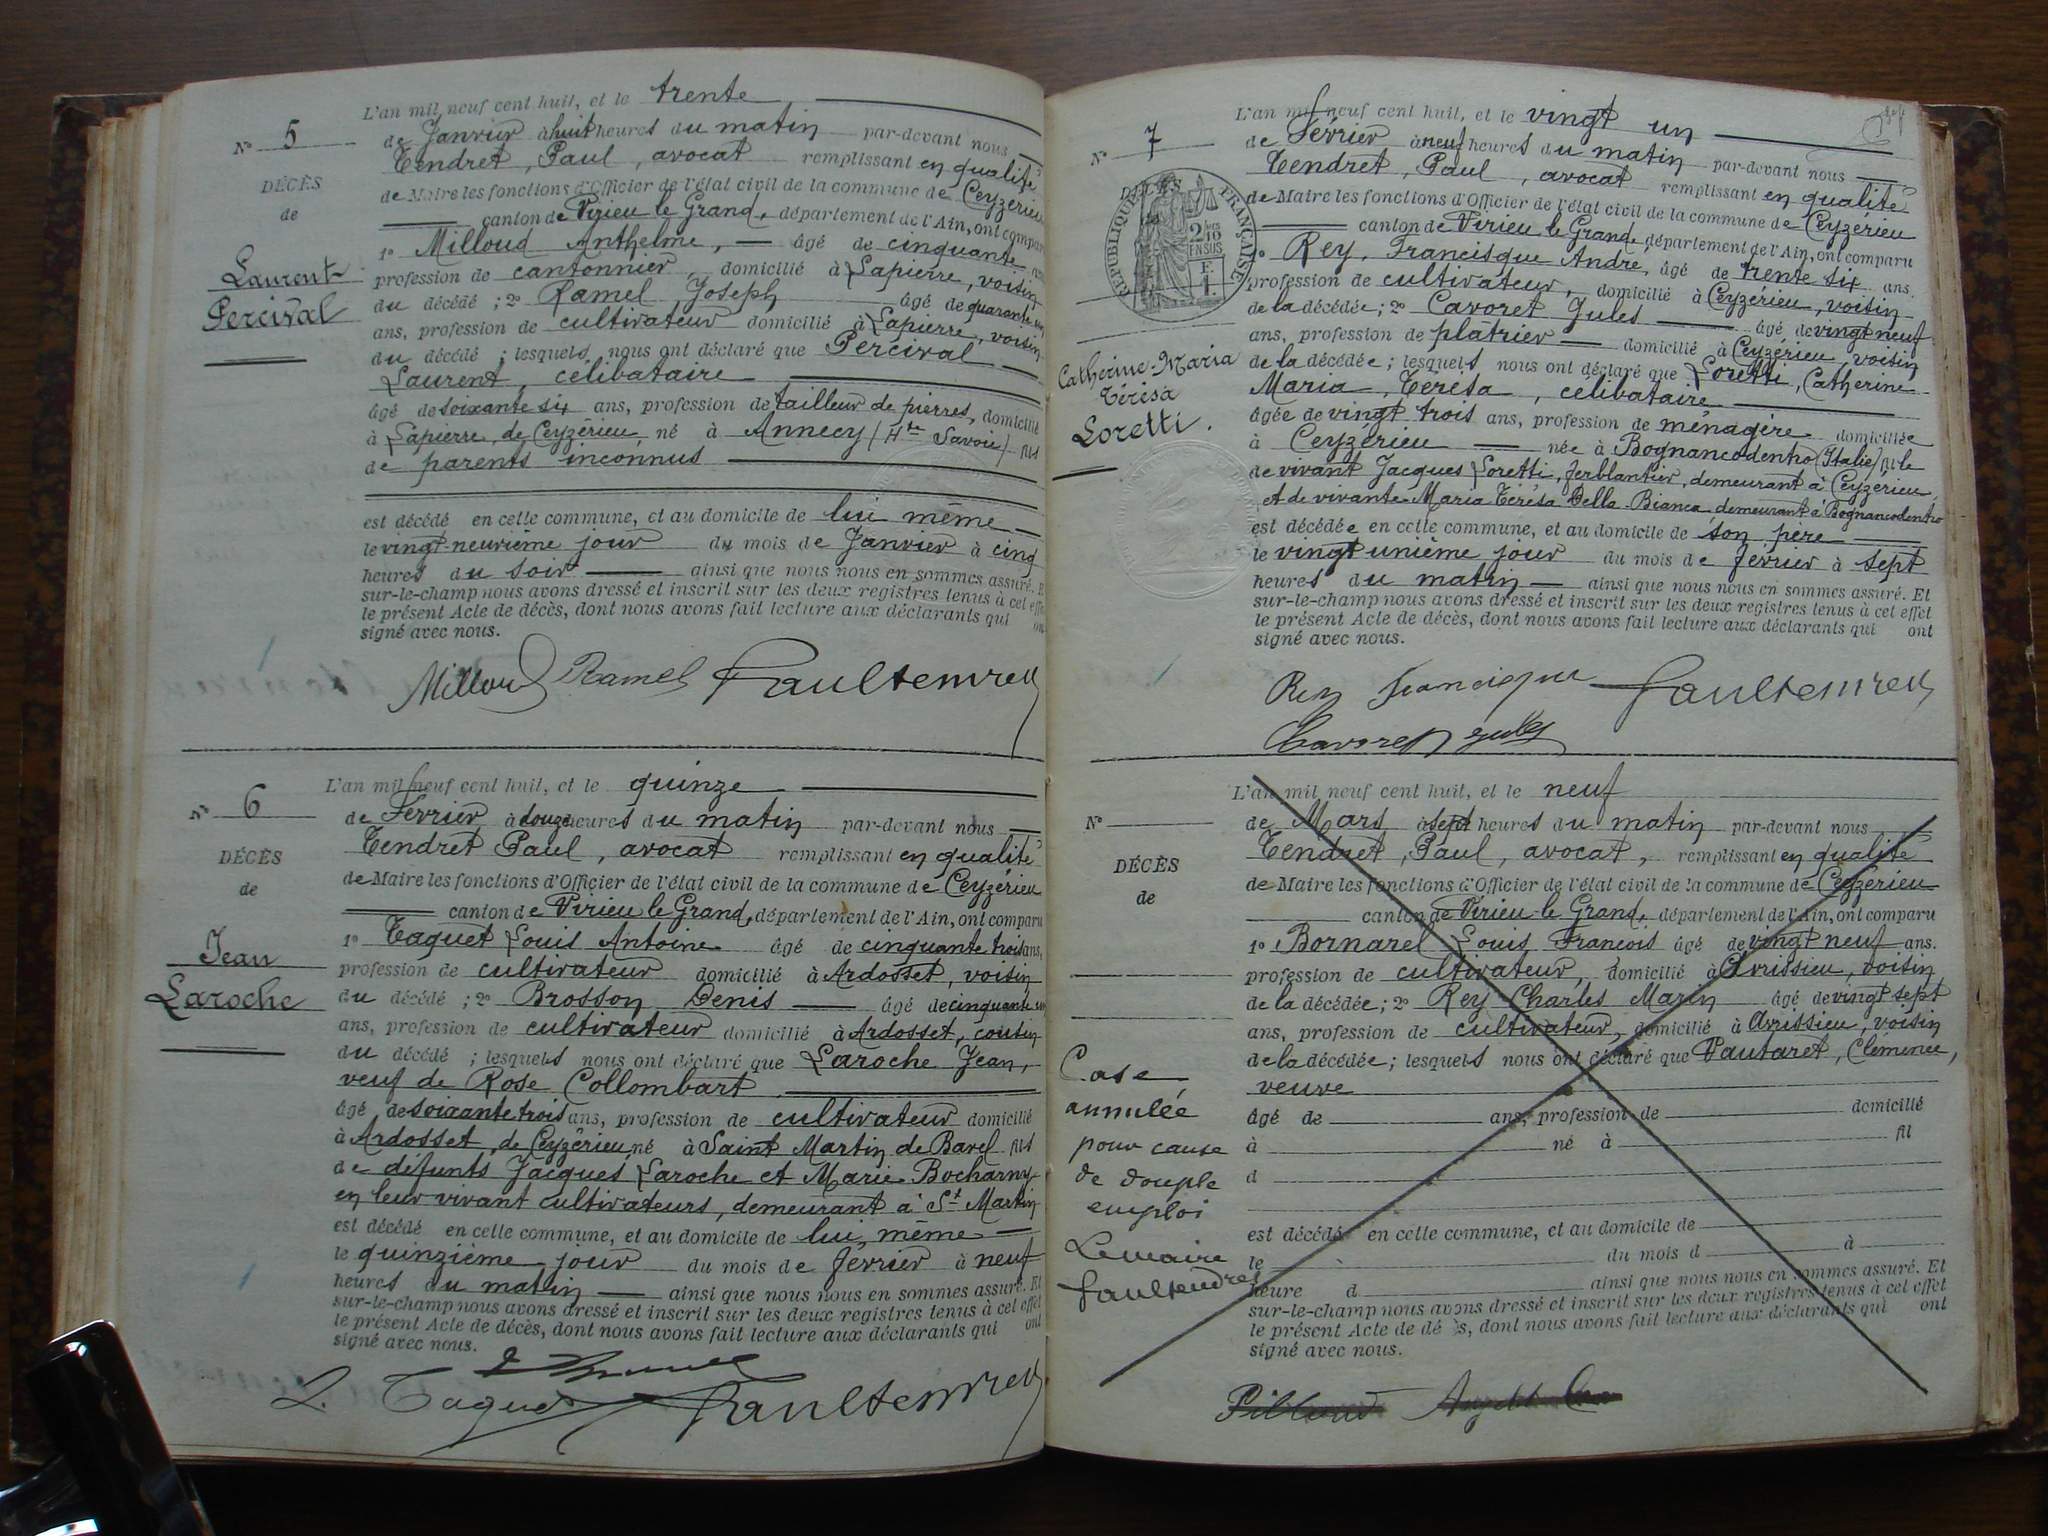 L'an mil neuf cent huit, et le trente
N° 5
de Janvier à huit heures du matin par-devant nous
Tendret, Paul, avocat remplissant en qualité
DÉCÈS
de Maire les fonctions d'Officier de l'état civil de la commune de Ceyzérieu
de
canton de Virieu le Grand, département de l'Ain, ont comparu
1° Milloud Anthelme, âgé de cinquante ans
Laurent
profession de cantonnier, domicilié à Lapierre, voisin
Percival
du décédé ; 2° Ramel Joseph âgé de quarante un
ans, profession de cultivateur domicilié à Lapierre, voisin
du décédé ; lesquels nous ont déclaré que Percival
Laurent, célibataire
âgé de soixante six ans, profession de tailleur de pierres, domicilié
à Lapierre, de Ceyzérieu, né à Annecy (Hte Savoie) fils
de parents inconnus
est décédé en cette commune, et au domicile de lui même
le vingt-neuvième jour du mois de Janvier à cinq
heures du soir ainsi que nous nous en sommes assuré. Et
sur-le-champ nous avons dressé et inscrit sur les deux registres tenus à cet effet
le présent Acte de décès, dont nous avons fait lecture aux déclarants qui ont
signé avec nous.
Milloud Ramel Paul Tendret
L'an mil neuf cent huit, et le quinze
N° 6
de Février à douze heures du matin par-devant nous
Tendret Paul, avocat remplissant en qualité
DÉCÈS
de Maire les fonctions d'Officier de l'état civil de la commune de Ceyzérieu
de
canton de Virieu le Grand, département de l'Ain, ont comparu
Jean
1° Taguet Louis Antoine âgé de cinquante trois ans,
profession de cultivateur domicilié à Ardosset, voisin
Laroche
du décédé ; 2° Brosson Denis âgé de cinquante un
ans, profession de cultivateur domicilié à Ardosset, cousin
du décédé ; lesquels nous ont déclaré que Laroche Jean,
veuf de Rose Collombart
âgé de soixante trois ans, profession de cultivateur domicilié
à Ardosset, de Ceyzérieu, né à Saint Martin de Bavel fils
de défunts Jacques Laroche et Marie Bocharny
en leur vivant cultivateurs, demeurant à St Martin
est décédé en cette commune, et au domicile de lui même
le quinzième jour du mois de février à neuf
heures du matin ainsi que nous nous en sommes assuré. Et
sur-le-champ nous avons dressé et inscrit sur les deux registres tenus à cet effet
le présent Acte de décès, dont nous avons fait lecture aux déclarants qui ont
signé avec nous.
L. Taguet Paul Tendret
L'an mil neuf cent huit, et le vingt un
N° 7
de Février à neuf heures du matin par-devant nous
Tendret, Paul, avocat remplissant en qualité
RÉPUBLIQUE FRANÇAISE
de Maire les fonctions d'Officier de l'état civil de la commune de Ceyzérieu
canton de Virieu le Grand, département de l'Ain, ont comparu
1° Rey, Francisque André, âgé de trente six ans.
profession de cultivateur, domicilié à Ceyzérieu, voisin
de la décédée ; 2° Cavoret Jules âgé de vingt neuf
ans, profession de platrier domicilié à Ceyzérieu, voisin
Catherine-Maria
Térésa
Loretti.
de la décédée ; lesquels nous ont déclaré que Loretti, Catherine
Maria, Teresa, célibataire
âgée de vingt trois ans, profession de ménagère domiciliée
à Ceyzérieu née à Bognancodentro (Italie) fille
de vivant Jacques Loretti, ferblantier, demeurant à Ceyzérieu,
et de vivante Maria Térésa Della-Bianca demeurant à Bognancodentro
est décédée en cette commune, et au domicile de son père
le vingt unième jour du mois de février à sept
heures du matin ainsi que nous nous en sommes assuré. Et
sur-le-champ nous avons dressé et inscrit sur les deux registres tenus à cet effet
le présent Acte de décès, dont nous avons fait lecture aux déclarants qui ont
signé avec nous.
Rey Francisque Paul Tendret
Cavoret Jules
L'an mil neuf cent huit, et le neuf
N°
de Mars à sept heures du matin par-devant nous
Tendret, Paul, avocat, remplissant en qualité
DÉCÈS
de Maire les fonctions d'Officier de l'état civil de la commune de Ceyzérieu
de
canton de Virieu-le Grand, département de l'Ain, ont comparu
1° Bornarel Louis François âgé de vingt neuf ans.
profession de cultivateur, domicilié à Avrissieu, voisin
de la décédée ; 2° Rey Charles Marin âgé de vingt sept
ans, profession de cultivateur, domicilié à Avrissieu, voisin
de la décédée ; lesquels nous ont déclaré que Vautaret, Clémence,
veuve
Case
annulée
pour cause
de double
emploi
Le maire
Paul Tendret
âgé de ans, profession de domicilié
à né à fil
d
est décédé en cette commune, et au domicile de
le du mois d à
heure d ainsi que nous nous en sommes assuré. Et
sur-le-champ nous avons dressé et inscrit sur les deux registres tenus à cet effet
le présent Acte de décès, dont nous avons fait lecture aux déclarants qui ont
signé avec nous.